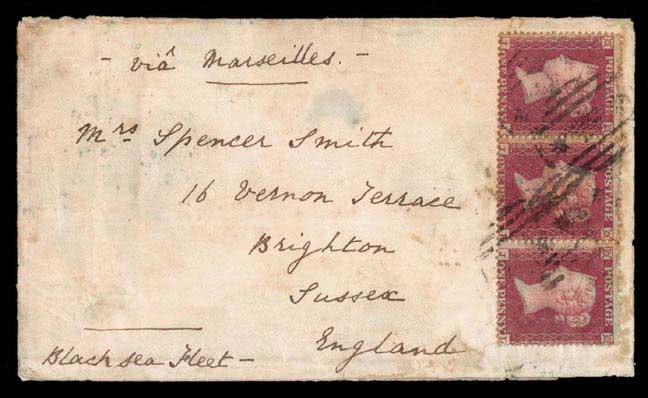 - viâ Marseilles. -
Mrs Spencer Smith
16 Vernon Terrace
Brighton
Sussex
England
Black sea Fleet -
POSTAGE
POSTAGE
POSTAGE
ONE PENNY.